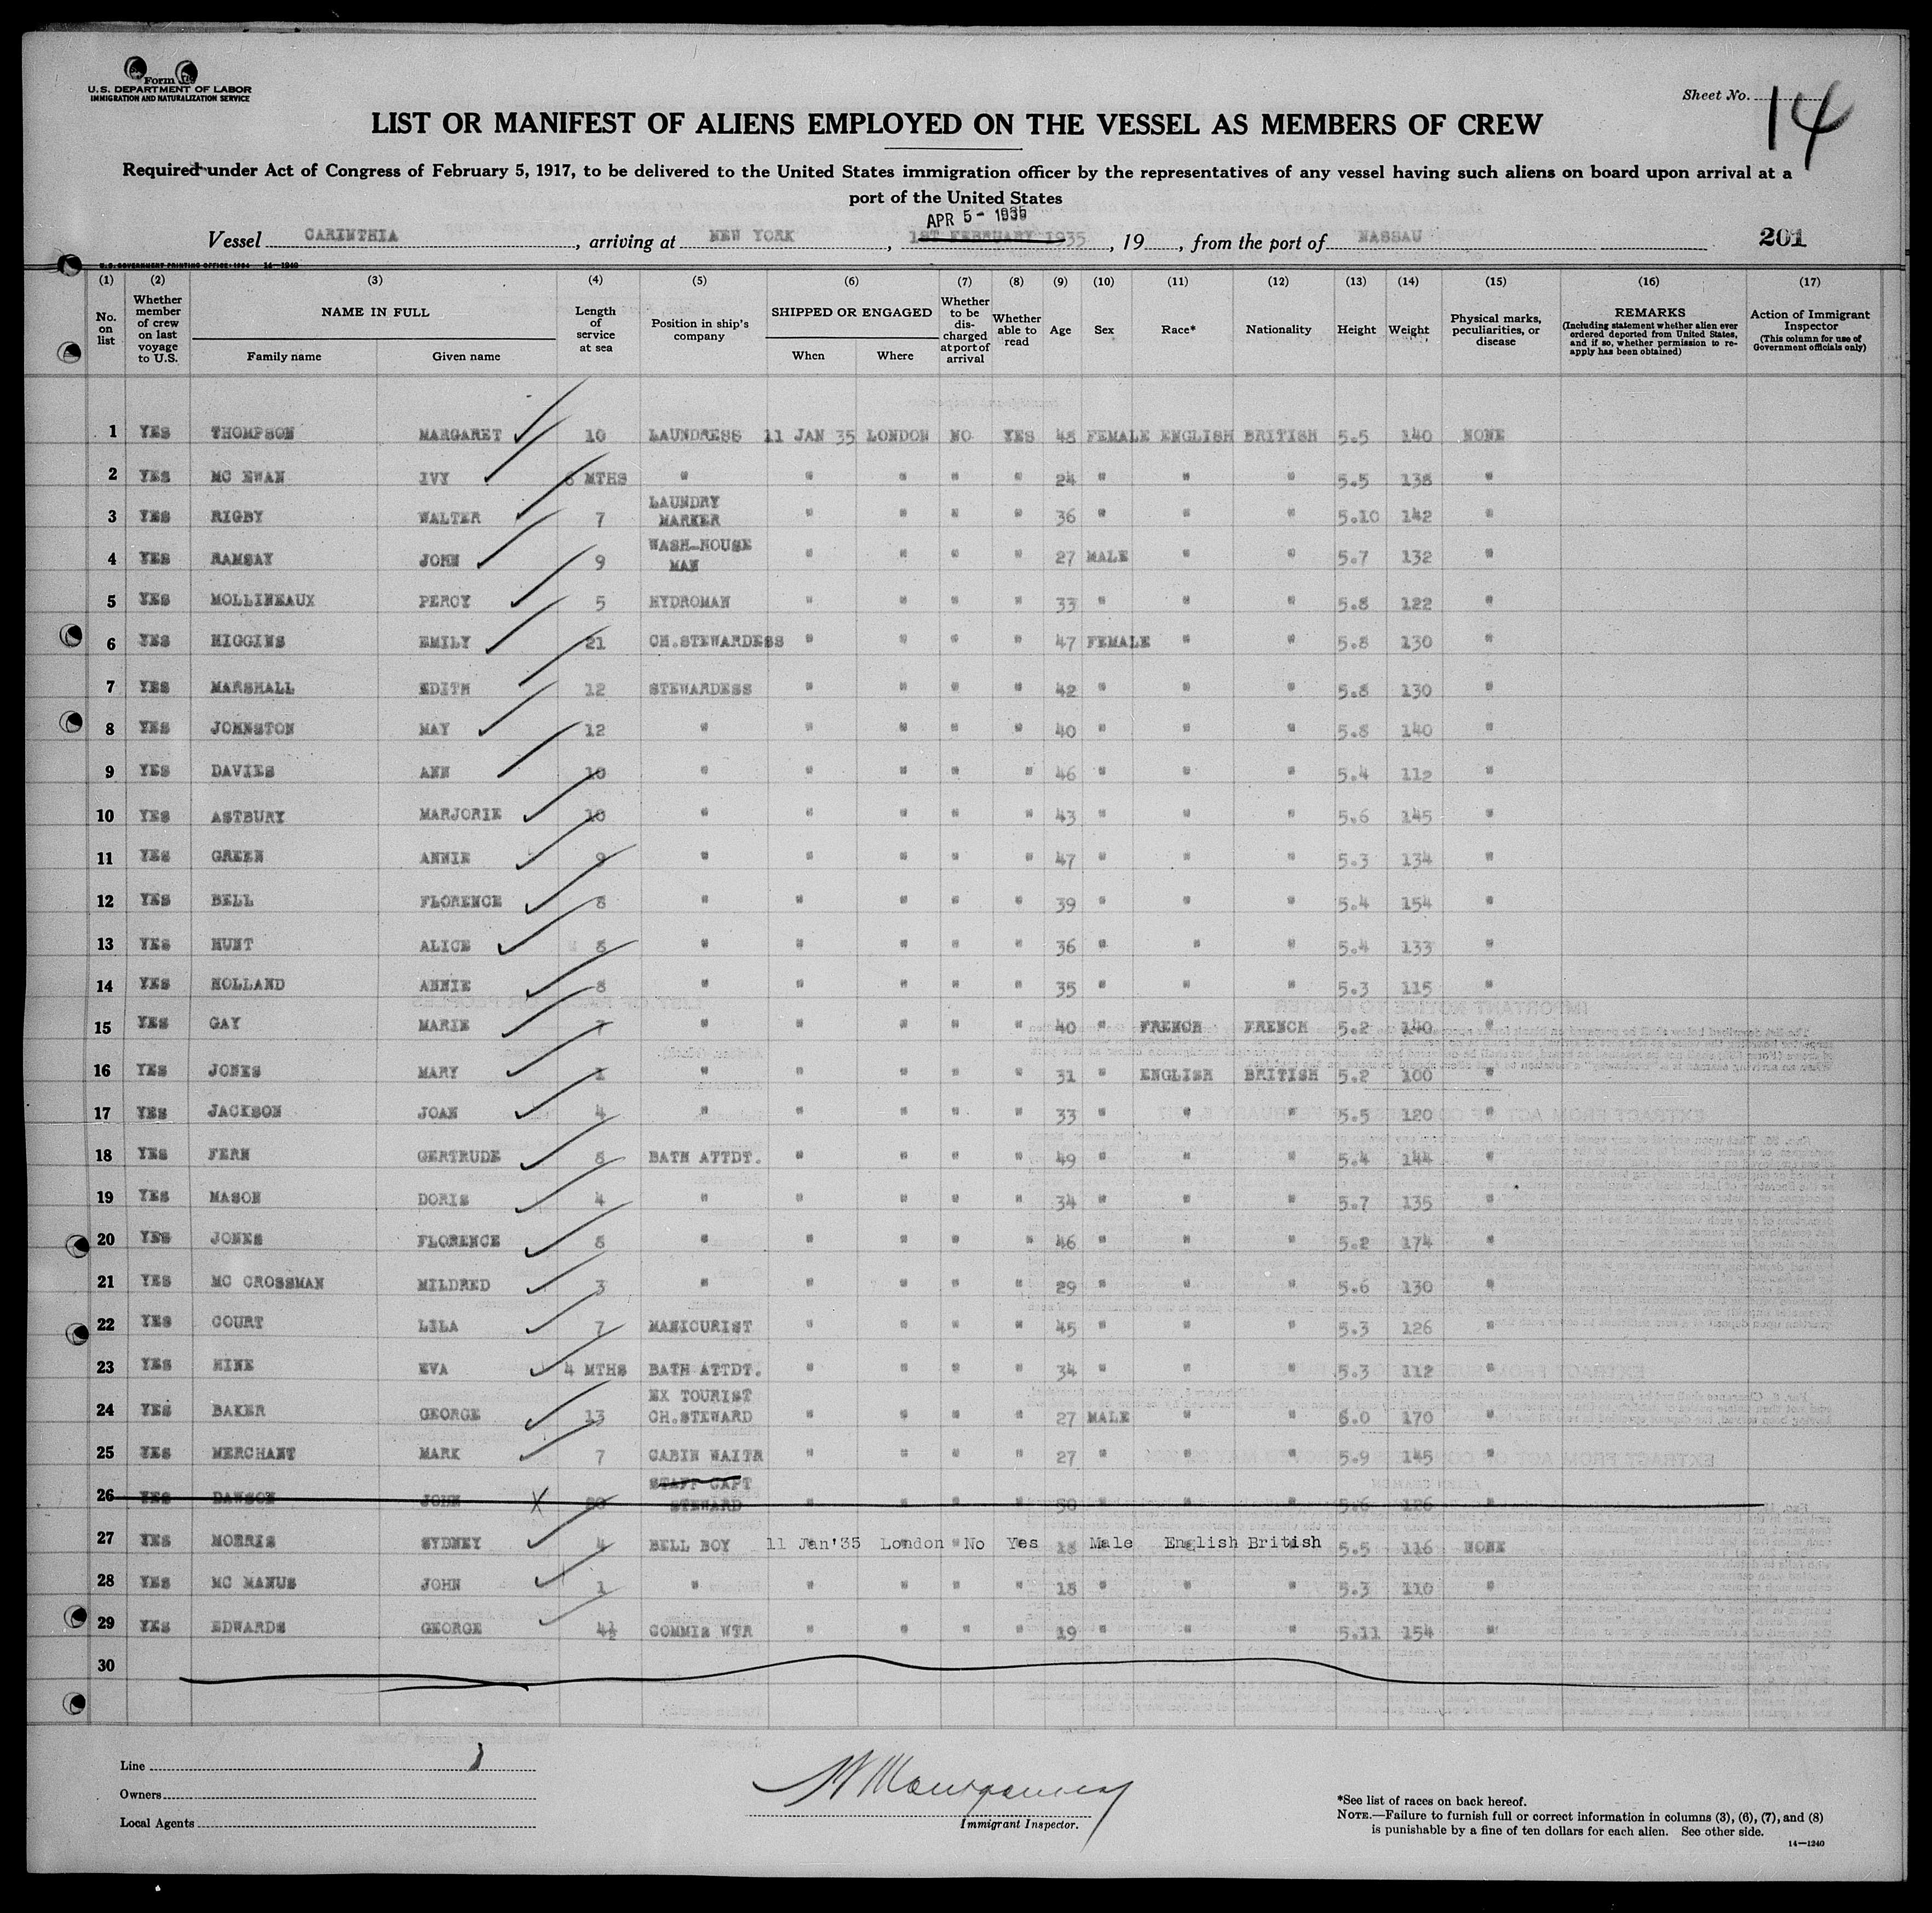 Form
U.S. DEPARTMENT OF LABOR
IMMIGRATION AND NATURALIZATION SERVICE
Sheet No. 14
LIST OR MANIFEST OF ALIENS EMPLOYED ON THE VESSEL AS MEMBERS OF CREW
Required under Act of Congress of February 5, 1917, to be delivered to the United States immigration officer by the representatives of any vessel having such aliens on board upon arrival at a
port of the United States
APR 5- 1935
Vessel CARINTHIA, arriving at NEW YORK, 1ST FEBRUARY 1935, 19, from the port of NASSAU 201
U.S. GOVERNMENT PRINTING OFFICE: 1934 14-1240
(1) (2) (3) (4) (5) (6) (7) (8) (9) (10) (11) (12) (13) (14) (15) (16) (17)
No. on list
Whether member of crew on last voyage to U.S.
NAME IN FULL
Family name Given name
Length of service at sea
Position in ship's company
SHIPPED OR ENGAGED
When Where
Whether to be discharged at port of arrival
Whether able to read
Age
Sex
Race*
Nationality
Height
Weight
Physical marks, peculiarities, or disease
REMARKS
(Including statement whether alien ever ordered deported from United States, and if so, whether permission to reapply has been obtained)
Action of Immigrant Inspector
(This column for use of Government officials only)
1 YES THOMPSON MARGARET 10 LAUNDRESS 11 JAN 35 LONDON NO YES 48 FEMALE ENGLISH BRITISH 5.5 140 NONE
2 YES MC EWAN IVY 6 MTHS " " " " " 24 " " " 5.5 138 "
3 YES RIGBY WALTER 7 LAUNDRY MARKER " " " " 36 " " " 5.10 142 "
4 YES RAMSAY JOHN 9 WASH-HOUSE MAN " " " " 27 MALE " " 5.7 132 "
5 YES MOLLINEAUX PERCY 5 HYDROMAN " " " " 33 " " " 5.8 122 "
6 YES HIGGINS EMILY 21 CH.STEWARDESS " " " " 47 FEMALE " " 5.8 130 "
7 YES MARSHALL EDITH 12 STEWARDESS " " " " 42 " " " 5.8 130 "
8 YES JOHNSTON MAY 12 " " " " " 40 " " " 5.8 140 "
9 YES DAVIES ANN 10 " " " " " 46 " " " 5.4 112 "
10 YES ASTBURY MARJORIE 10 " " " " " 43 " " " 5.6 145 "
11 YES GREEN ANNIE 9 " " " " " 47 " " " 5.3 134 "
12 YES BELL FLORENCE 8 " " " " " 39 " " " 5.4 154 "
13 YES HUNT ALICE 8 " " " " " 36 " " " 5.4 133 "
14 YES HOLLAND ANNIE 8 " " " " " 35 " " " 5.3 115 "
15 YES GAY MARIE 7 " " " " " 40 " FRENCH FRENCH 5.2 140 "
16 YES JONES MARY 1 " " " " " 31 " ENGLISH BRITISH 5.2 100 "
17 YES JACKSON JOAN 4 " " " " " 33 " " " 5.5 120 "
18 YES FERN GERTRUDE 8 BATH ATTDT. " " " " 49 " " " 5.4 144 "
19 YES MASON DORIS 4 " " " " " 34 " " " 5.7 135 "
20 YES JONES FLORENCE 8 " " " " " 46 " " " 5.2 174 "
21 YES MC CROSSMAN MILDRED 3 " " " " " 29 " " " 5.6 130 "
22 YES COURT LILA 7 MANICURIST " " " " 45 " " " 5.3 126 "
23 YES HINE EVA 4 MTHS BATH ATTDT. " " " " 34 " " " 5.3 112 "
24 YES BAKER GEORGE 13 EX TOURIST CH.STEWARD " " " " 27 MALE " " 6.0 170 "
25 YES MERCHANT MARK 7 CABIN WAITR " " " " 27 " " " 5.9 145 "
26 YES DAWSON JOHN X 20 STAFF CAPT STEWARD " " " " 50 " " " 5.6 126 "
27 YES MORRIS SYDNEY 4 BELL BOY 11 Jan'35 London No Yes 18 Male English British 5.5 116 NONE
28 YES MC MANUS JOHN 1 " " " " " 18 " " " 5.3 110 "
29 YES EDWARDS GEORGE 4½ COMMIS WTR " " " " 19 " " " 5.11 154 "
30
Line
Owners
Local Agents
Montgomery
Immigrant Inspector.
*See list of races on back hereof.
NOTE.—Failure to furnish full or correct information in columns (3), (6), (7), and (8)
is punishable by a fine of ten dollars for each alien. See other side.
14—1240